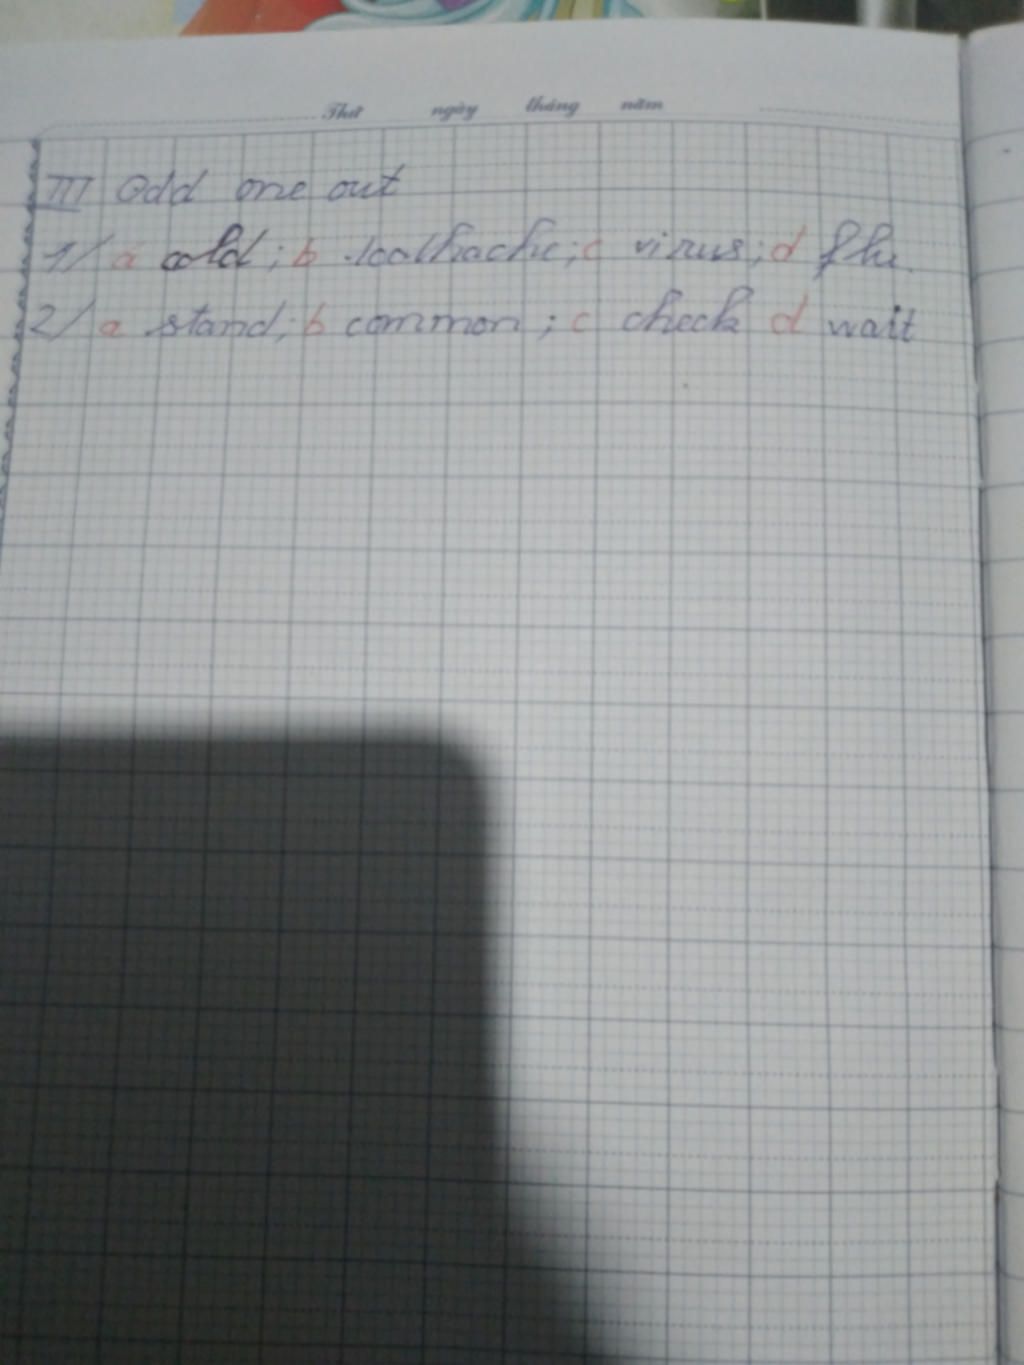 Thứ ngày tháng năm
III Odd one out
1/ a cold; b toothache; c virus; d flu.
2/ a stand; b common; c check d wait